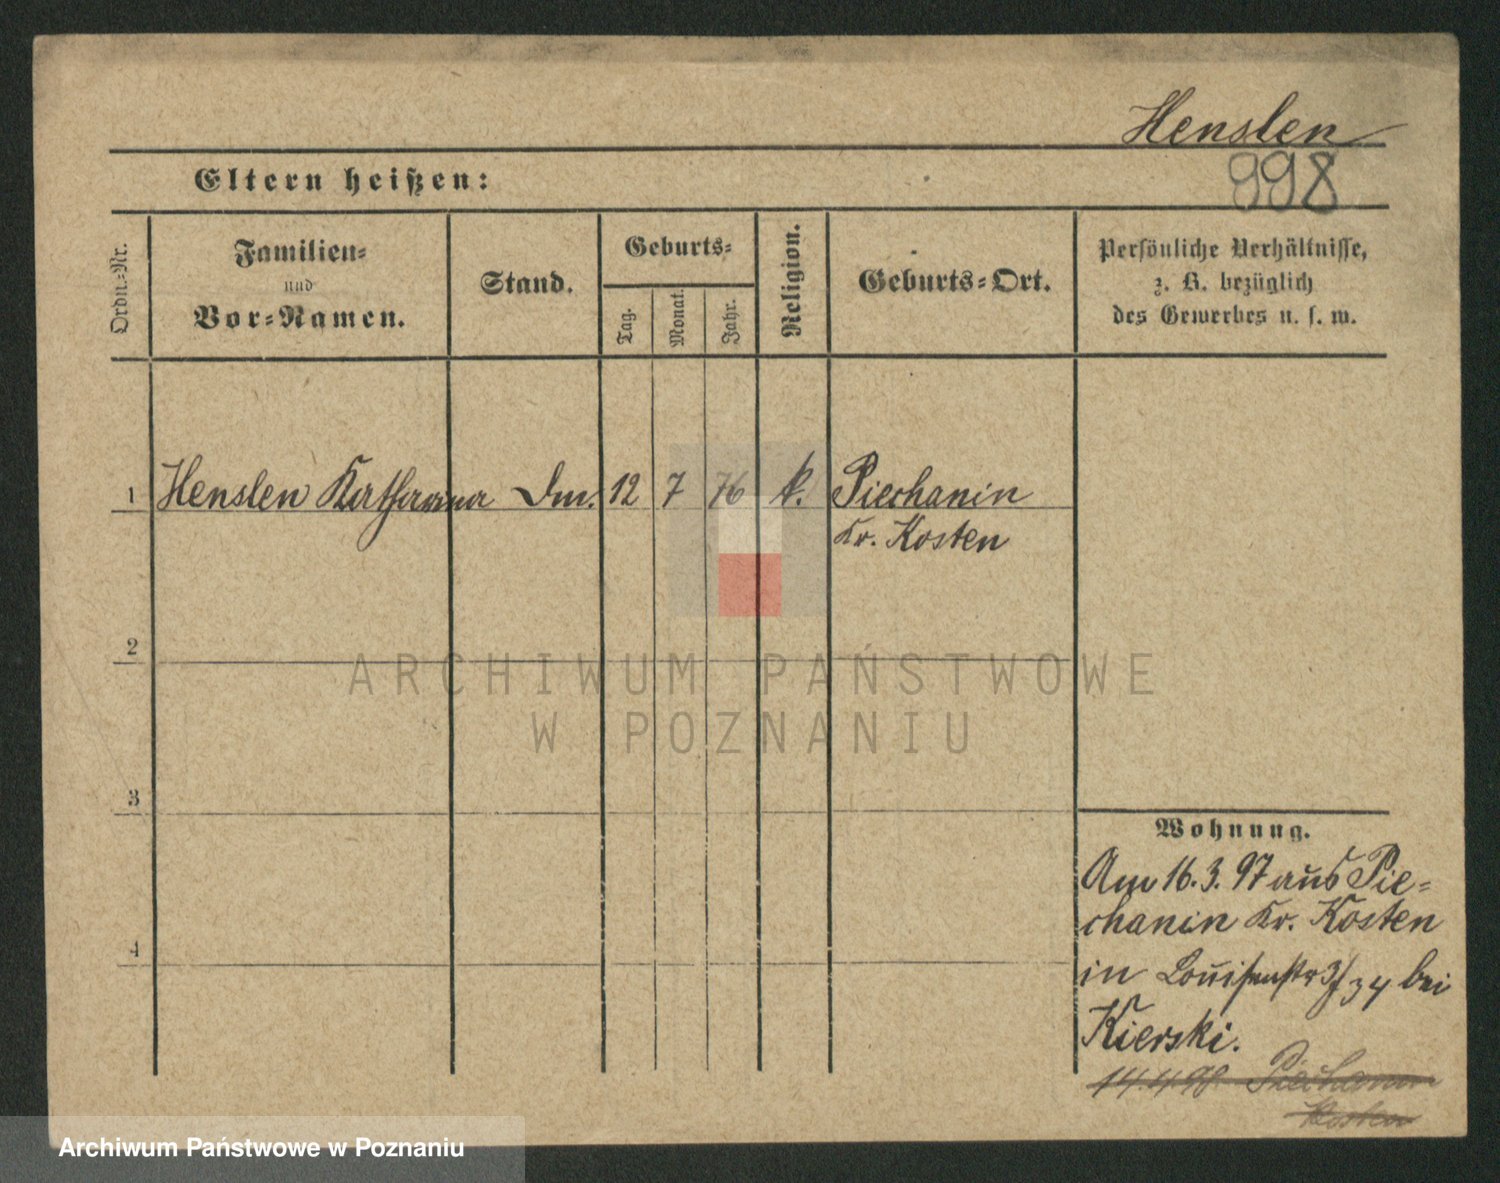 Henslen
998
Eltern heißen:
Ordn.-Nr.
Familien-
und
Vor-Namen.
Stand.
Geburts-
Tag.
Monat.
Jahr.
Religion.
Geburts-Ort.
Persönliche Verhältnisse,
z. B. bezüglich
des Gewerbes u. s. w.
1 Henslen Katharina Dm. 12 7 76 k. Piechanin
Kr. Kosten
2
3
4
Wohnung.
Am 16.3.97 aus Pie-
chanin Kr. Kosten
in Louisenstr 3/34 bei
Kierski.
14.4.98 Piechanin
Kosten
ARCHIWUM PAŃSTWOWE
W POZNANIU
Archiwum Państwowe w Poznaniu